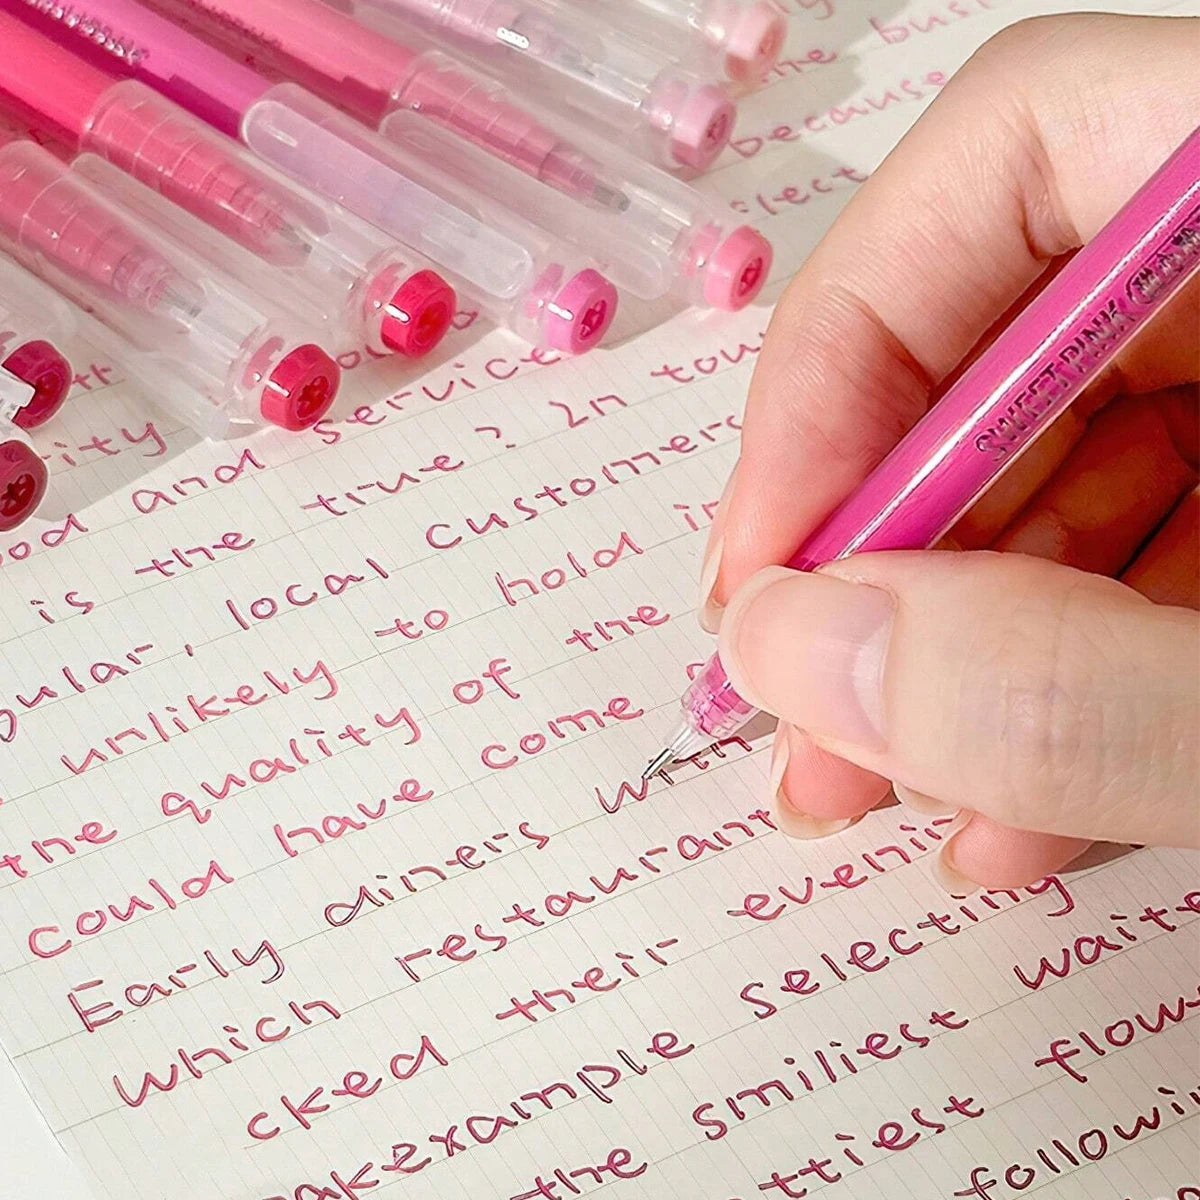 busi
because
ilect
ity
ood and service
is the true? In tou
ular, local customer
unlikely to hold in
the quality of the
could have come
Early diners with
which restaurant
cked their evenin
akexample selecting
the smiliest waite
ttiest flow
following
SWEET PINK